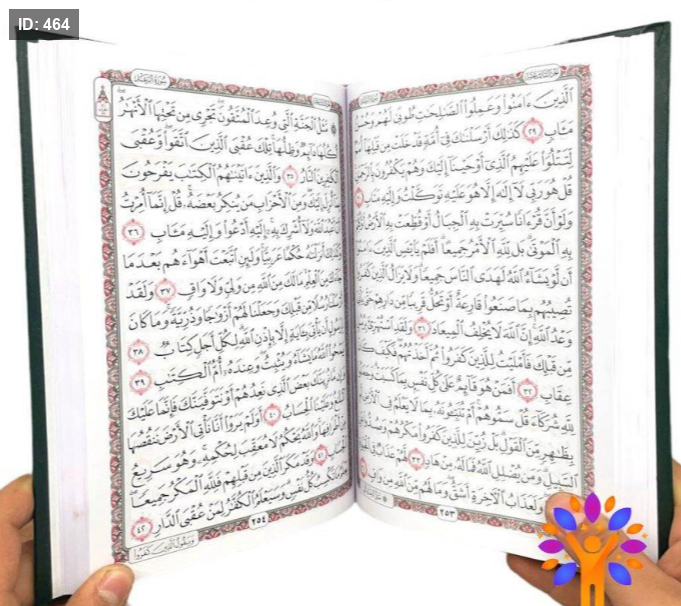 ID: 464
الَّذِينَ ءَامَنُوا۟ وَعَمِلُوا۟ الصَّٰلِحَٰتِ طُوبَىٰ لَهُمْ وَحُسْنُ
مَـَٔابٍ ٢٩ كَذَٰلِكَ أَرْسَلْنَٰكَ فِىٓ أُمَّةٍ قَدْ خَلَتْ مِن قَبْلِهَآ أُمَمٌ
لِّتَتْلُوَا۟ عَلَيْهِمُ الَّذِىٓ أَوْحَيْنَآ إِلَيْكَ وَهُمْ يَكْفُرُونَ بِالرَّحْمَٰنِ
قُلْ هُوَ رَبِّى لَآ إِلَٰهَ إِلَّا هُوَ عَلَيْهِ تَوَكَّلْتُ وَإِلَيْهِ مَتَابِ
وَلَوْ أَنَّ قُرْءَانًا سُيِّرَتْ بِهِ الْجِبَالُ أَوْ قُطِّعَتْ بِهِ الْأَرْضُ أَوْ
بِهِ الْمَوْتَىٰ بَل لِّلَّهِ الْأَمْرُ جَمِيعًا أَفَلَمْ يَا۟يْـَٔسِ الَّذِينَ ءَامَنُوٓا۟
أَن لَّوْ يَشَآءُ اللَّهُ لَهَدَى النَّاسَ جَمِيعًا وَلَا يَزَالُ الَّذِينَ كَفَرُوا۟
تُصِيبُهُم بِمَا صَنَعُوا۟ قَارِعَةٌ أَوْ تَحُلُّ قَرِيبًا مِّن دَارِهِمْ حَتَّىٰ
وَعْدُ اللَّهِ إِنَّ اللَّهَ لَا يُخْلِفُ الْمِيعَادَ ٣١ وَلَقَدِ اسْتُهْزِئَ بِرُسُلٍ
مِّن قَبْلِكَ فَأَمْلَيْتُ لِلَّذِينَ كَفَرُوا۟ ثُمَّ أَخَذْتُهُمْ فَكَيْفَ كَانَ
عِقَابِ ٣٢ أَفَمَنْ هُوَ قَآئِمٌ عَلَىٰ كُلِّ نَفْسٍ بِمَا كَسَبَتْ
لِلَّهِ شُرَكَآءَ قُلْ سَمُّوهُمْ أَمْ تُنَبِّـُٔونَهُۥ بِمَا لَا يَعْلَمُ فِى الْأَرْضِ
بِظَٰهِرٍ مِّنَ الْقَوْلِ بَلْ زُيِّنَ لِلَّذِينَ كَفَرُوا۟ مَكْرُهُمْ وَصُدُّوا۟
السَّبِيلِ وَمَن يُضْلِلِ اللَّهُ فَمَا لَهُۥ مِنْ هَادٍ ٣٣ لَّهُمْ عَذَابٌ
وَلَعَذَابُ الْءَاخِرَةِ أَشَقُّ وَمَا لَهُم مِّنَ اللَّهِ مِن وَاقٍ
٢٥٣
سُورَةُ الرَّعْدِ
مَّثَلُ الْجَنَّةِ الَّتِى وُعِدَ الْمُتَّقُونَ تَجْرِى مِن تَحْتِهَا الْأَنْهَٰرُ
أُكُلُهَا دَآئِمٌ وَظِلُّهَا تِلْكَ عُقْبَى الَّذِينَ اتَّقَوا۟ وَّعُقْبَى
الْكَٰفِرِينَ النَّارُ ٣٥ وَالَّذِينَ ءَاتَيْنَٰهُمُ الْكِتَٰبَ يَفْرَحُونَ
أُنزِلَ إِلَيْكَ وَمِنَ الْأَحْزَابِ مَن يُنكِرُ بَعْضَهُۥ قُلْ إِنَّمَآ أُمِرْتُ
أَنْ أَعْبُدَ اللَّهَ وَلَآ أُشْرِكَ بِهِۦٓ إِلَيْهِ أَدْعُوا۟ وَإِلَيْهِ مَـَٔابِ ٣٦
أَنزَلْنَٰهُ حُكْمًا عَرَبِيًّا وَلَئِنِ اتَّبَعْتَ أَهْوَآءَهُم بَعْدَمَا
مِنَ الْعِلْمِ مَا لَكَ مِنَ اللَّهِ مِن وَلِىٍّ وَلَا وَاقٍ ٣٧ وَلَقَدْ
رُسُلًا مِّن قَبْلِكَ وَجَعَلْنَا لَهُمْ أَزْوَٰجًا وَذُرِّيَّةً وَمَا كَانَ
لِرَسُولٍ أَن يَأْتِىَ بِـَٔايَةٍ إِلَّا بِإِذْنِ اللَّهِ لِكُلِّ أَجَلٍ كِتَابٌ ٣٨
يَمْحُوا۟ اللَّهُ مَا يَشَآءُ وَيُثْبِتُ وَعِندَهُۥٓ أُمُّ الْكِتَٰبِ ٣٩
بَعْضَ الَّذِى نَعِدُهُمْ أَوْ نَتَوَفَّيَنَّكَ فَإِنَّمَا عَلَيْكَ
وَعَلَيْنَا الْحِسَابُ ٤٠ أَوَلَمْ يَرَوْا۟ أَنَّا نَأْتِى الْأَرْضَ نَنقُصُهَا
مِنْ أَطْرَافِهَا وَاللَّهُ يَحْكُمُ لَا مُعَقِّبَ لِحُكْمِهِۦ وَهُوَ سَرِيعُ
٤١ وَقَدْ مَكَرَ الَّذِينَ مِن قَبْلِهِمْ فَلِلَّهِ الْمَكْرُ جَمِيعًا
تَكْسِبُ كُلُّ نَفْسٍ وَسَيَعْلَمُ الْكُفَّٰرُ لِمَنْ عُقْبَى الدَّارِ ٤٢
٢٥٤
وَيَقُولُ الَّذِينَ كَفَرُوا۟